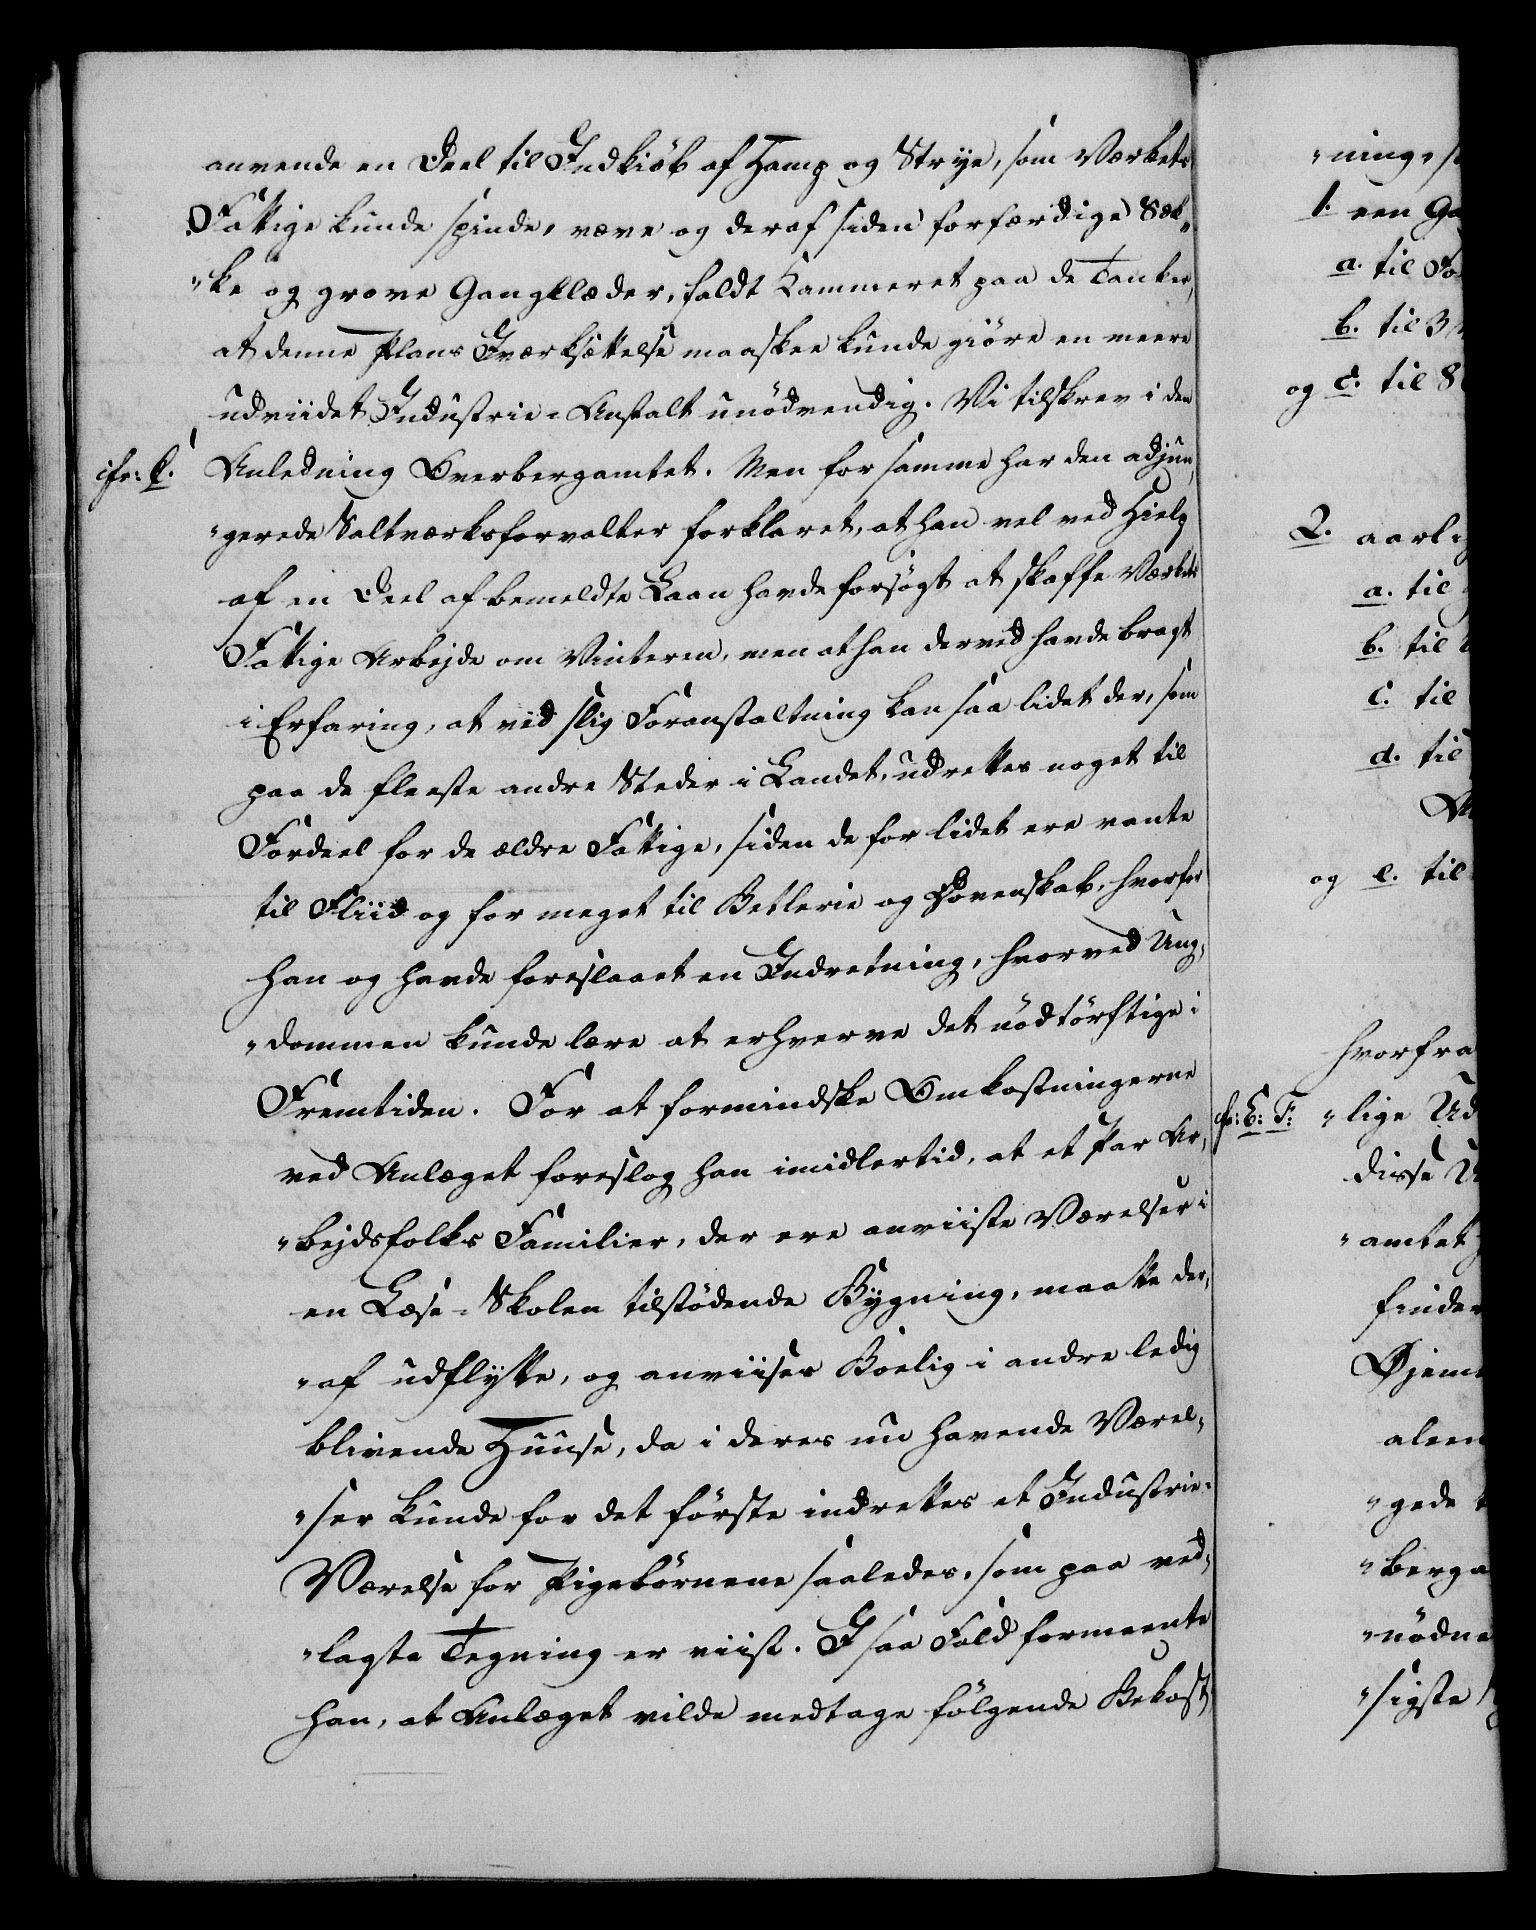 anvende en Deel til Indkiöb af Hamp og Strye, som Værkets
Fattige kunde spinde, væve og deraf siden forfærdige Sæk„
„ke og grove Gangklæder, faldt Kammeret paa de Tanker,
at denne Plans Iværksættelse maaskee kunde giöre en meere
udviidet Industrie-Anstalt unödvendig. Vi tilskrev i den
cfr: C. Anledning Overbergamtet. Men for samme har den adjun„
„gerede Saltværksforvalter forklaret, at han vel ved Hielp
af en Deel af bemeldte Laan havde forsögt at skaffe Værkets
Fattige Arbejde om Vinteren, men at han derved havde bragt
i Erfaring, at ved slig Foranstaltning kan saa lidet der, som
paa de fleeste andre Steder i Landet, udrettes noget til
Fordeel for de ældre Fattige, siden de for lidet ere vante
til Fliid og for meget til Betlerie og Dovenskab, hvorfor
han og havde foreslaaet en Indretning, hvorved Ung„
„dommen kunde lære at erhverve det nödtörftige i
Fremtiden. For at formindske Omkostningerne
ved Anlæget foreslog han imidlertid, at et Par Ar„
„bejdsfolks Familier, der ere anviiste Værelser i
en Læse-Skolen tilstödende Bygning, maatte der„
„af udflytte, og anviises Boelig i andre ledig
blivende Huuse, da i deres nu havende Værel„
„ser kunde for det förste indrettes et Industrie-
Værelse for Pigebörnene saaledes, som paa ved„
„lagte Tegning er viist. I saa Fald formeente
han, at Anlæget vilde medtage fölgende Bekost„
„ning, s
1. een Ga
a. til Fo
b. til 3
og c. til 8
2. aarlig
a. til
b. til
c. til
d. til
og e. til
hvorfra
cfr: E: F: „lige Ud
disse U
„amtet
finder
Øjem
aleen
„gede
„berga
„nödve
„sigste